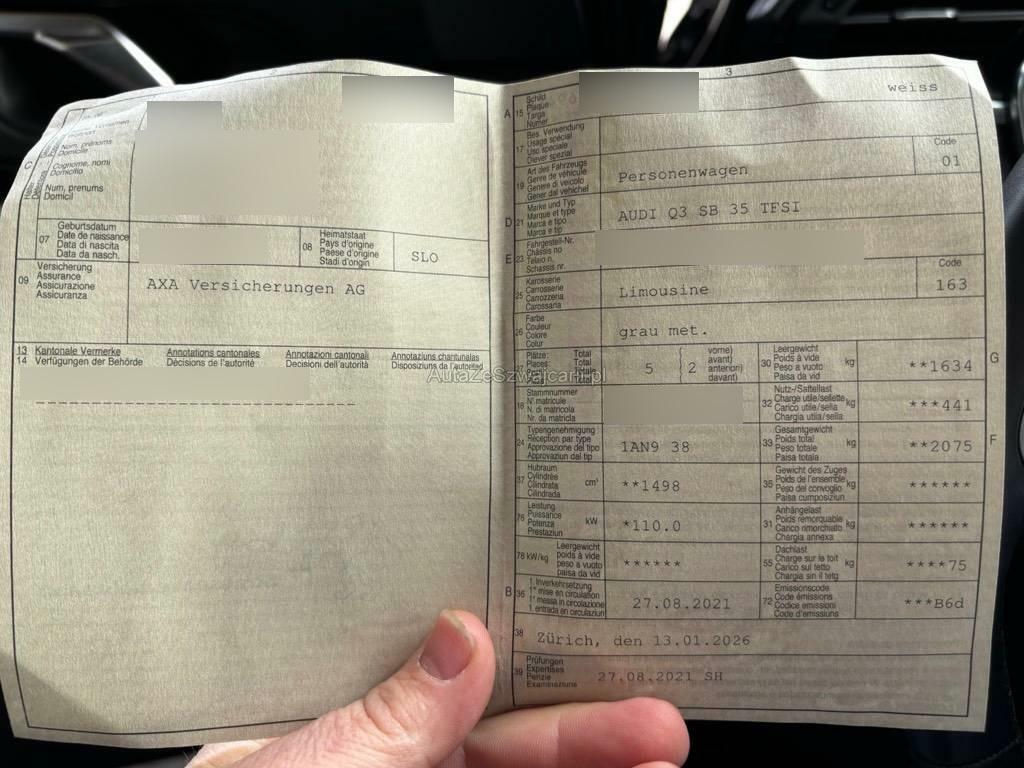 Nom, prénoms
Domicile
Cognome, nomi
Domicilio
Num, prenums
Domicil
C
07
Geburtsdatum
Date de naissance
Data di nascita
Data da nasch.
08
Heimatstaat
Pays d'origine
Paese d'origine
Stadi d'origin
SLO
09
Versicherung
Assurance
Assicurazione
Assicuranza
AXA Versicherungen AG
13 Kantonale Vermerke Annotations cantonales Annotazioni cantonali Annotaziuns chantunalas
14 Verfügungen der Behörde Décisions de l'autorité Decisioni dell'autorità Disposiziuns da l'autorità
AutaZeSzwajcarii.pl
3
A 15
Schild
Plaque
Targa
Numer
weiss
17
Bes. Verwendung
Usage spécial
Uso speciale
Diever spezial
19
Art des Fahrzeugs
Genre de véhicule
Genere di veicolo
Gener dal vehichel
Personenwagen
Code
01
D 21
Marke und Typ
Marque et type
Marca e tipo
Marca e tip
AUDI Q3 SB 35 TFSI
E 23
Fahrgestell-Nr.
Châssis no
Telaio n.
Schassis nr.
25
Karosserie
Carrosserie
Carrozzeria
Carossaria
Limousine
Code
163
26
Farbe
Couleur
Colore
Colur
grau met.
27
Plätze: Total
Places Total
Totale
Total
5 ( 2
vorne)
avant)
anteriori)
davant)
30
Leergewicht
Poids à vide
Peso a vuoto
Paisa da vid
kg
**1634
G
18
Stammnummer
N° matricule
N. di matricola
Nr. da matricla
32
Nutz-/Sattellast
Charge utile/sellette
Carico utile/sella
Chargia utila/sella
kg
***441
24
Typengenehmigung
Réception par type
Approvazione del tipo
Approvaziun dal tip
1AN9 38
33
Gesamtgewicht
Poids total
Peso totale
Paisa totala
kg
**2075
F
37
Hubraum
Cylindrée
Cilindrata
Cilindrada
cm³
**1498
35
Gewicht des Zuges
Poids de l'ensemble
Peso del convoglio
Paisa cumposiziun
kg
******
76
Leistung
Puissance
Potenza
Prestaziun
kW
*110.0
31
Anhängelast
Poids remorquable
Carico rimorchiato
Chargia annexa
kg
******
78 kW/kg
Leergewicht
poids à vide
peso a vuoto
paisa da vid
******
55
Dachlast
Charge sur le toit
Carico sul tetto
Chargia sin il tetg
kg
****75
B 36
1. Inverkehrsetzung
1re mise en circulation
1a messa in circolazione
1. entrada en circulaziun
27.08.2021
72
Emissionscode
Code émissions
Codice emissioni
Code d'emissiuns
***B6d
38
Zürich, den 13.01.2026
39
Prüfungen
Expertises
Perizie
Examinaziuns
27.08.2021 SH